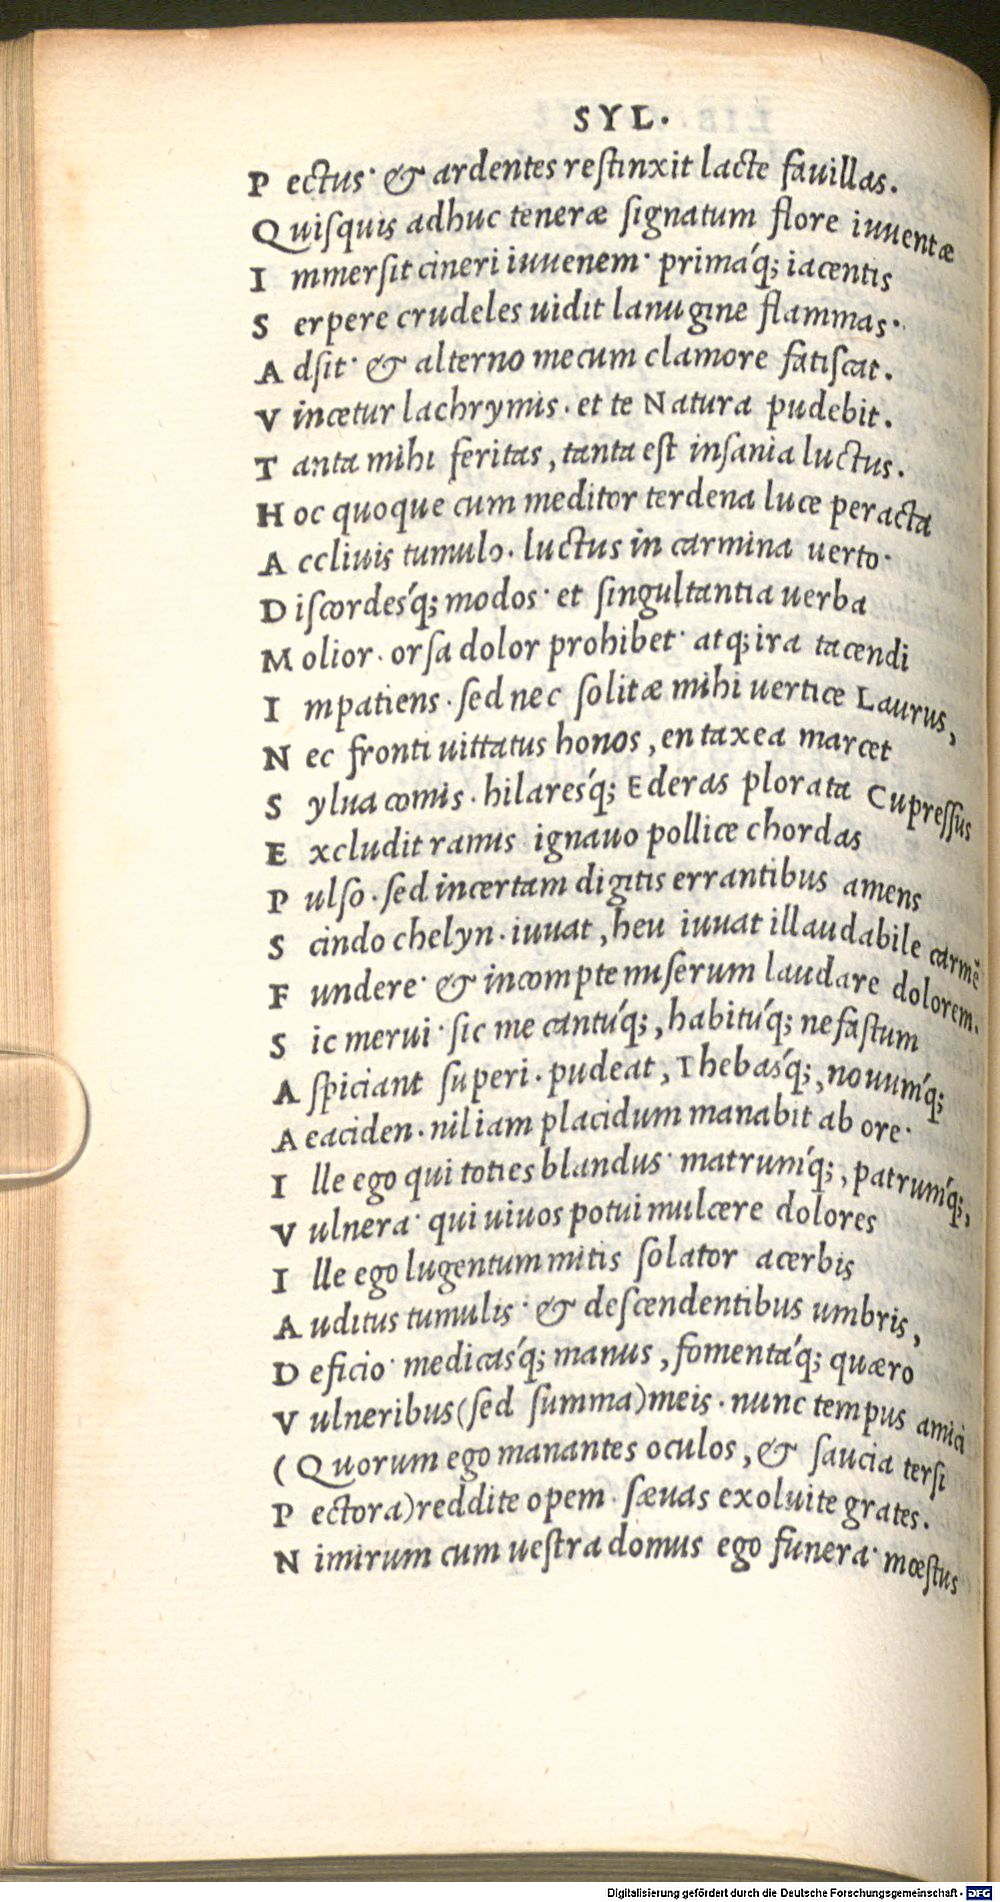 SYL.
P ectus· & ardentes restinxit lacte fauillas.
Q uisquis adhuc teneræ signatum flore iuuentæ
I mmersit cineri iuuenem· primáq; iacentis
S erpere crudeles uidit lanugine flammas·
A dsit· & alterno mecum clamore fatiscat.
V incetur lachrymis. et te Natura pudebit.
T anta mihi feritas, tanta est insania luctus.
H oc quoque cum meditor terdena luce peracta
A ccliuis tumulo. luctus in carmina uerto·
D iscordesq́; modos· et singultantia uerba
M olior. orsa dolor prohibet· atq; ira tacendi
I mpatiens. sed nec solitæ mihi uertice Laurus,
N ec fronti uittatus honos, en taxea marcet
S ylua comis. hilaresq́; Ederas plorata Cupressus
E xcludit ramis ignauo pollice chordas
P ulso. sed incertam digitis errantibus amens
S cindo chelyn. iuuat, heu iuuat illaudabile carmē
F undere· & incompte miserum laudare dolorem.
S ic merui· sic me cantúq;, habitúq; nefastum
A spiciant superi. pudeat, Thebasq́;, nouumq́;
A eaciden. nil iam placidum manabit ab ore·
I lle ego qui toties blandus· matrumq́;, patrumq́;,
V ulnera· qui uiuos potui mulcere dolores
I lle ego lugentum mitis solator acerbis
A uditus tumulis· & descendentibus umbris,
D eficio· medicasq́; manus, fomentáq; quæro
V ulneribus (sed summa) meis. nunc tempus amici
( Quorum ego manantes oculos, & saucia tersi
P ectora) reddite opem· sæuas exoluite grates.
N imirum cum uestra domus ego funera· mœstus
Digitalisierung gefördert durch die Deutsche Forschungsgemeinschaft - DFG